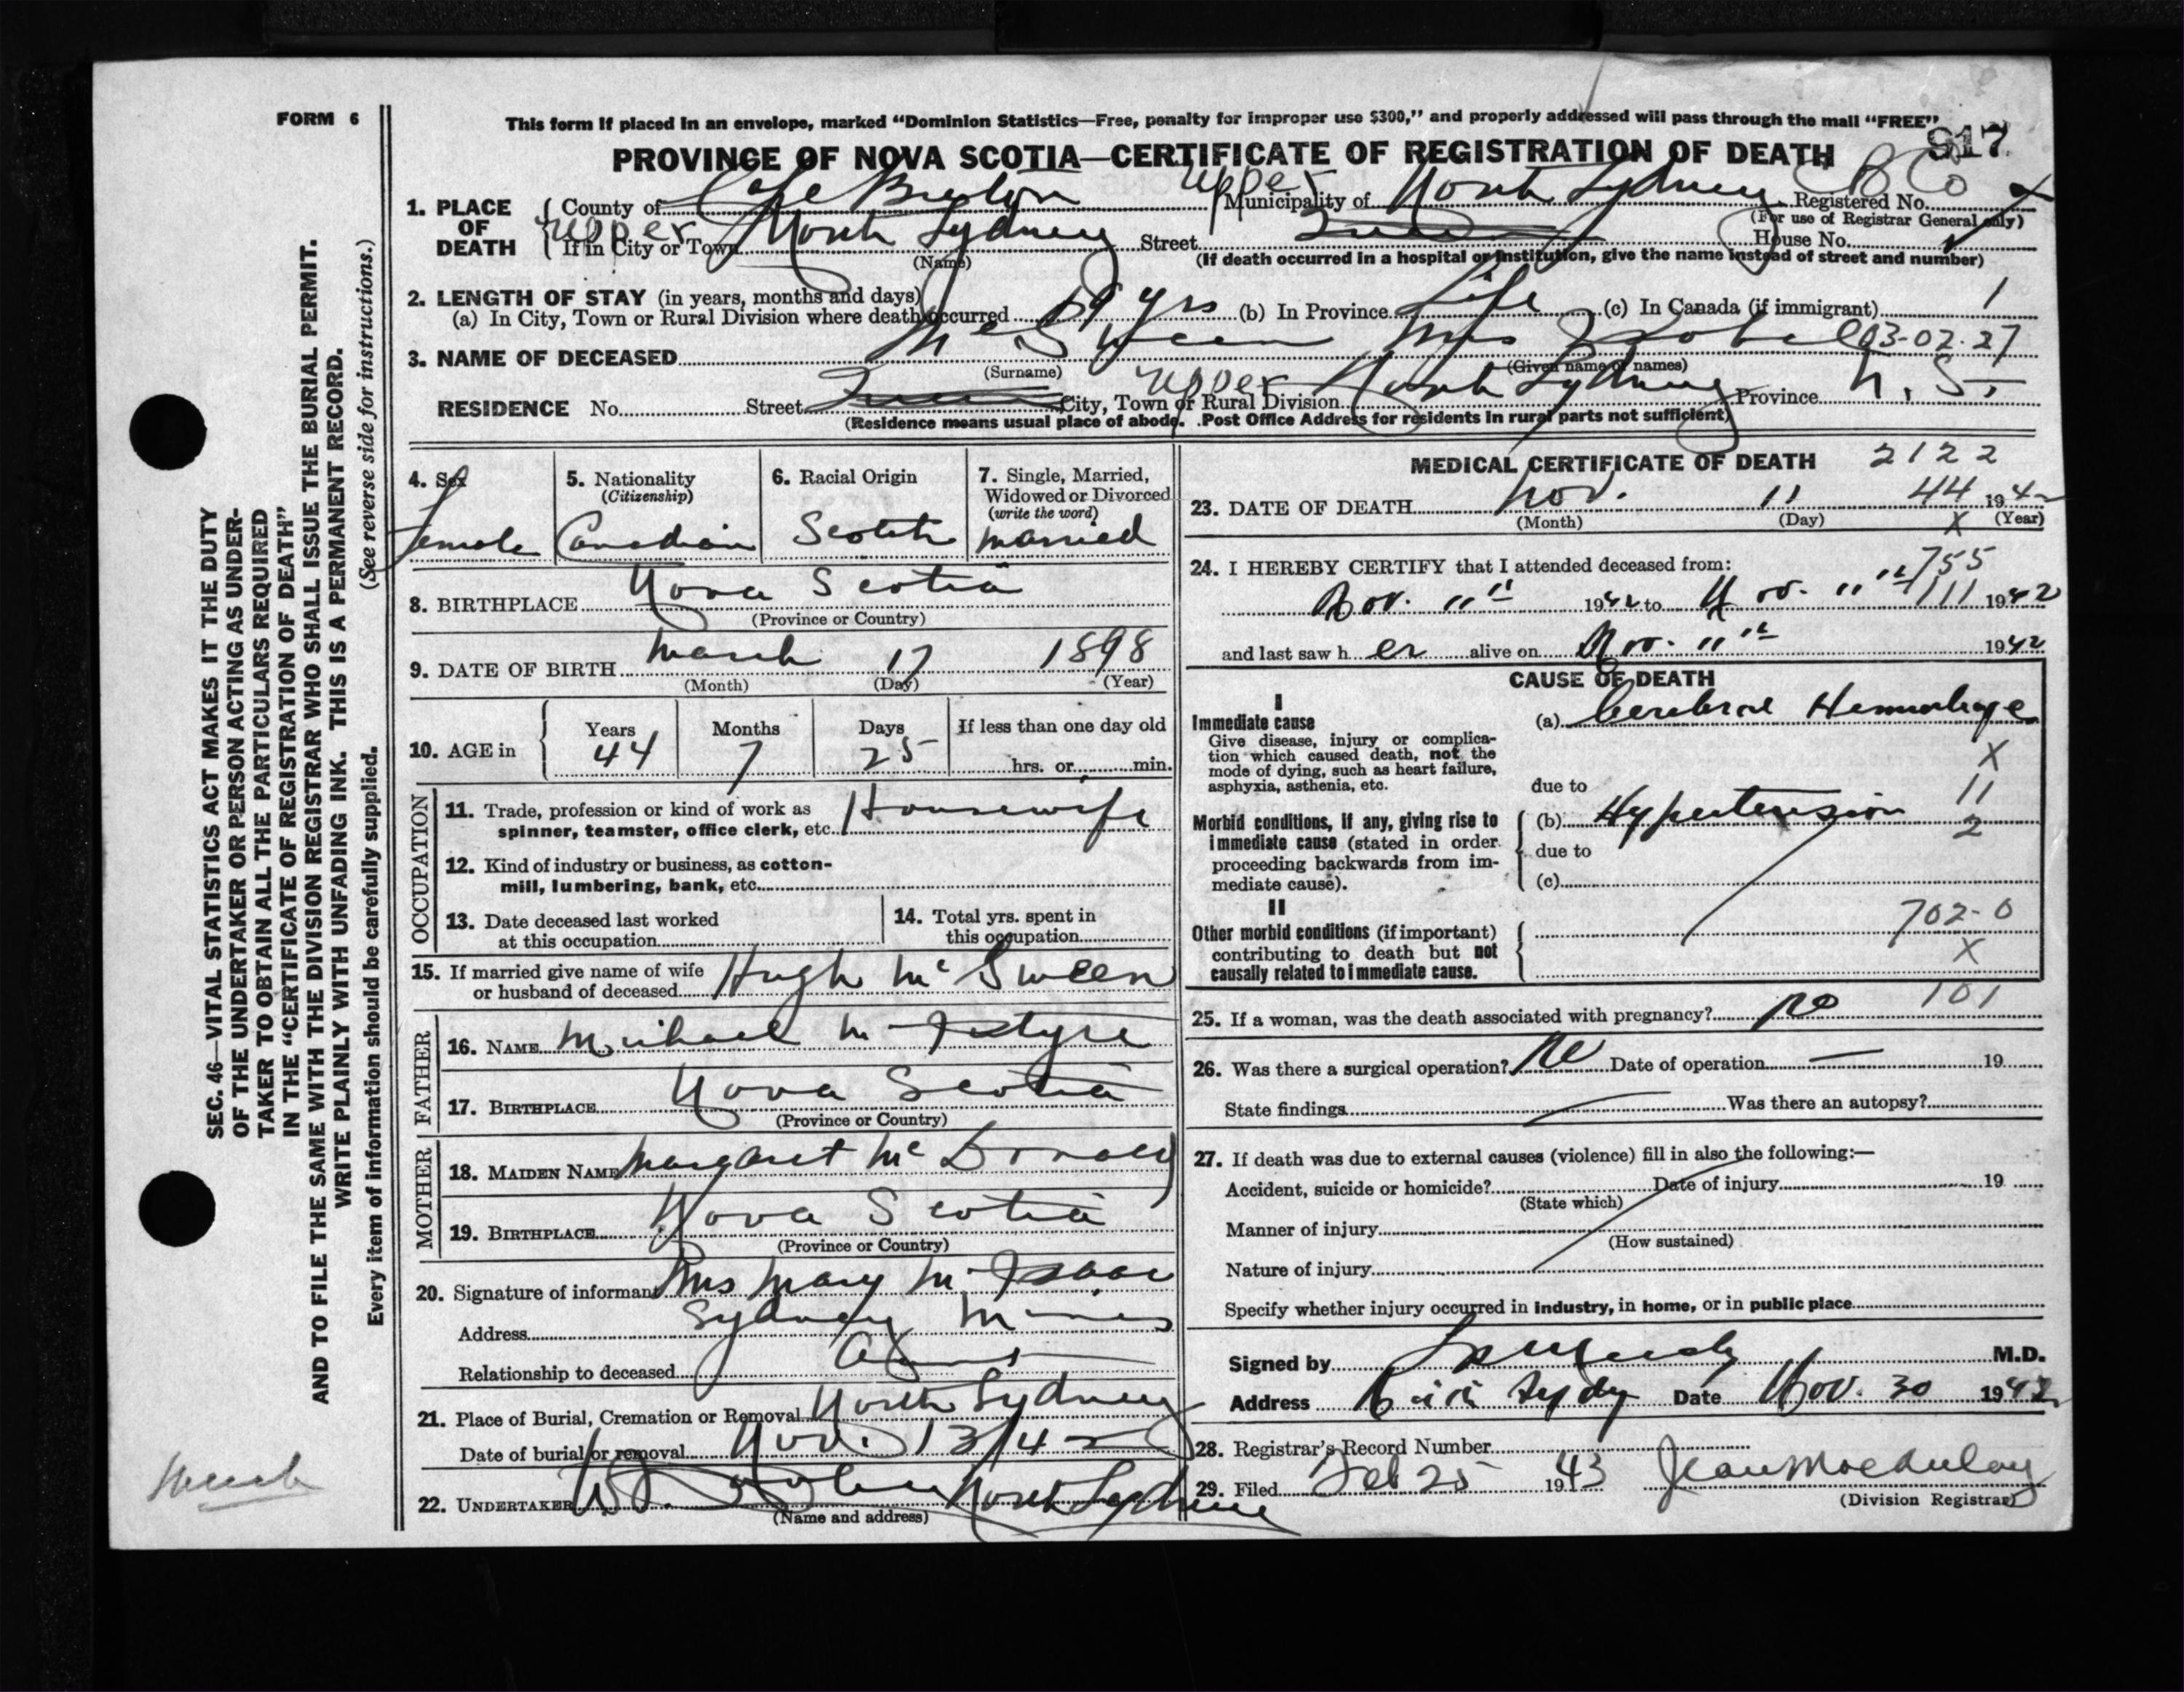 FORM 6
This form if placed in an envelope, marked “Dominion Statistics—Free, penalty for improper use $300,” and properly addressed will pass through the mail “FREE”
917
PROVINCE OF NOVA SCOTIA—CERTIFICATE OF REGISTRATION OF DEATH
1. PLACE OF DEATH
County of Cape Breton Municipality of Upper North Sydney Registered No.
(For use of Registrar General only)
If in City or Town Upper North Sydney Street House No.
(Name) (If death occurred in a hospital or institution, give the name instead of street and number)
2. LENGTH OF STAY (in years, months and days)
(a) In City, Town or Rural Division where death occurred 19 yrs (b) In Province Life (c) In Canada (if immigrant) 1
3. NAME OF DECEASED McSween Mrs 03-02-27
(Surname) (Given name or names)
RESIDENCE No. Street City, Town or Rural Division Upper North Sydney Province N. S.
(Residence means usual place of abode. Post Office Address for residents in rural parts not sufficient)
4. Sex Female
5. Nationality (Citizenship) Canadian
6. Racial Origin Scotch
7. Single, Married, Widowed or Divorced (write the word) Married
8. BIRTHPLACE Nova Scotia
(Province or Country)
9. DATE OF BIRTH March 17 1898
(Month) (Day) (Year)
10. AGE in Years 44 Months 7 Days 25 If less than one day old
hrs. or min.
OCCUPATION
11. Trade, profession or kind of work as spinner, teamster, office clerk, etc. Housewife
12. Kind of industry or business, as cotton-mill, lumbering, bank, etc.
13. Date deceased last worked at this occupation
14. Total yrs. spent in this occupation
15. If married give name of wife or husband of deceased Hugh McSween
FATHER
16. NAME Michael McIntyre
17. BIRTHPLACE Nova Scotia
(Province or Country)
MOTHER
18. MAIDEN NAME Margaret McDonald
19. BIRTHPLACE Nova Scotia
(Province or Country)
20. Signature of informant Mrs Mary McIsaac
Address Sydney Mines
Relationship to deceased
21. Place of Burial, Cremation or Removal North Sydney
Date of burial or removal Nov. 13/42
22. UNDERTAKER North Sydney
(Name and address)
MEDICAL CERTIFICATE OF DEATH 2122
23. DATE OF DEATH Nov. 11 44 1942
(Month) (Day) X (Year)
24. I HEREBY CERTIFY that I attended deceased from: 755
Nov. 11th 1942 to Nov. 11th 111 1942
and last saw her alive on Nov. 11th 1942
CAUSE OF DEATH
I
Immediate cause (a) Cerebral Hemorrhage
Give disease, injury or complication which caused death, not the mode of dying, such as heart failure, asphyxia, asthenia, etc.
X
due to 11
Morbid conditions, if any, giving rise to immediate cause (stated in order proceeding backwards from immediate cause).
(b) Hypertension 2
due to
(c)
II
702-0
Other morbid conditions (if important) contributing to death but not causally related to immediate cause.
X
101
25. If a woman, was the death associated with pregnancy? no
26. Was there a surgical operation? No Date of operation — 19
State findings Was there an autopsy?
27. If death was due to external causes (violence) fill in also the following:—
Accident, suicide or homicide? Date of injury 19
(State which)
Manner of injury
(How sustained)
Nature of injury
Specify whether injury occurred in industry, in home, or in public place
Signed by M.D.
Address Date Nov. 30 1942
28. Registrar's Record Number
29. Filed Feb 25 1943 Jean MacAulay
(Division Registrar)
SEC. 46—VITAL STATISTICS ACT MAKES IT THE DUTY
OF THE UNDERTAKER OR PERSON ACTING AS UNDER-
TAKER TO OBTAIN ALL THE PARTICULARS REQUIRED
IN THE “CERTIFICATE OF REGISTRATION OF DEATH”
AND TO FILE THE SAME WITH THE DIVISION REGISTRAR WHO SHALL ISSUE THE BURIAL PERMIT.
WRITE PLAINLY WITH UNFADING INK. THIS IS A PERMANENT RECORD.
Every item of information should be carefully supplied. (See reverse side for instructions.)